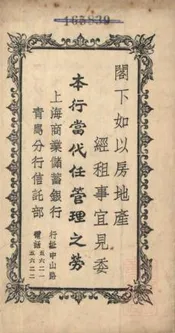 165839
閣下如以房地產
經租事宜見委
本行當代任管理之勞
上海商業儲蓄銀行
青島分行信託部
行址中山路
電話